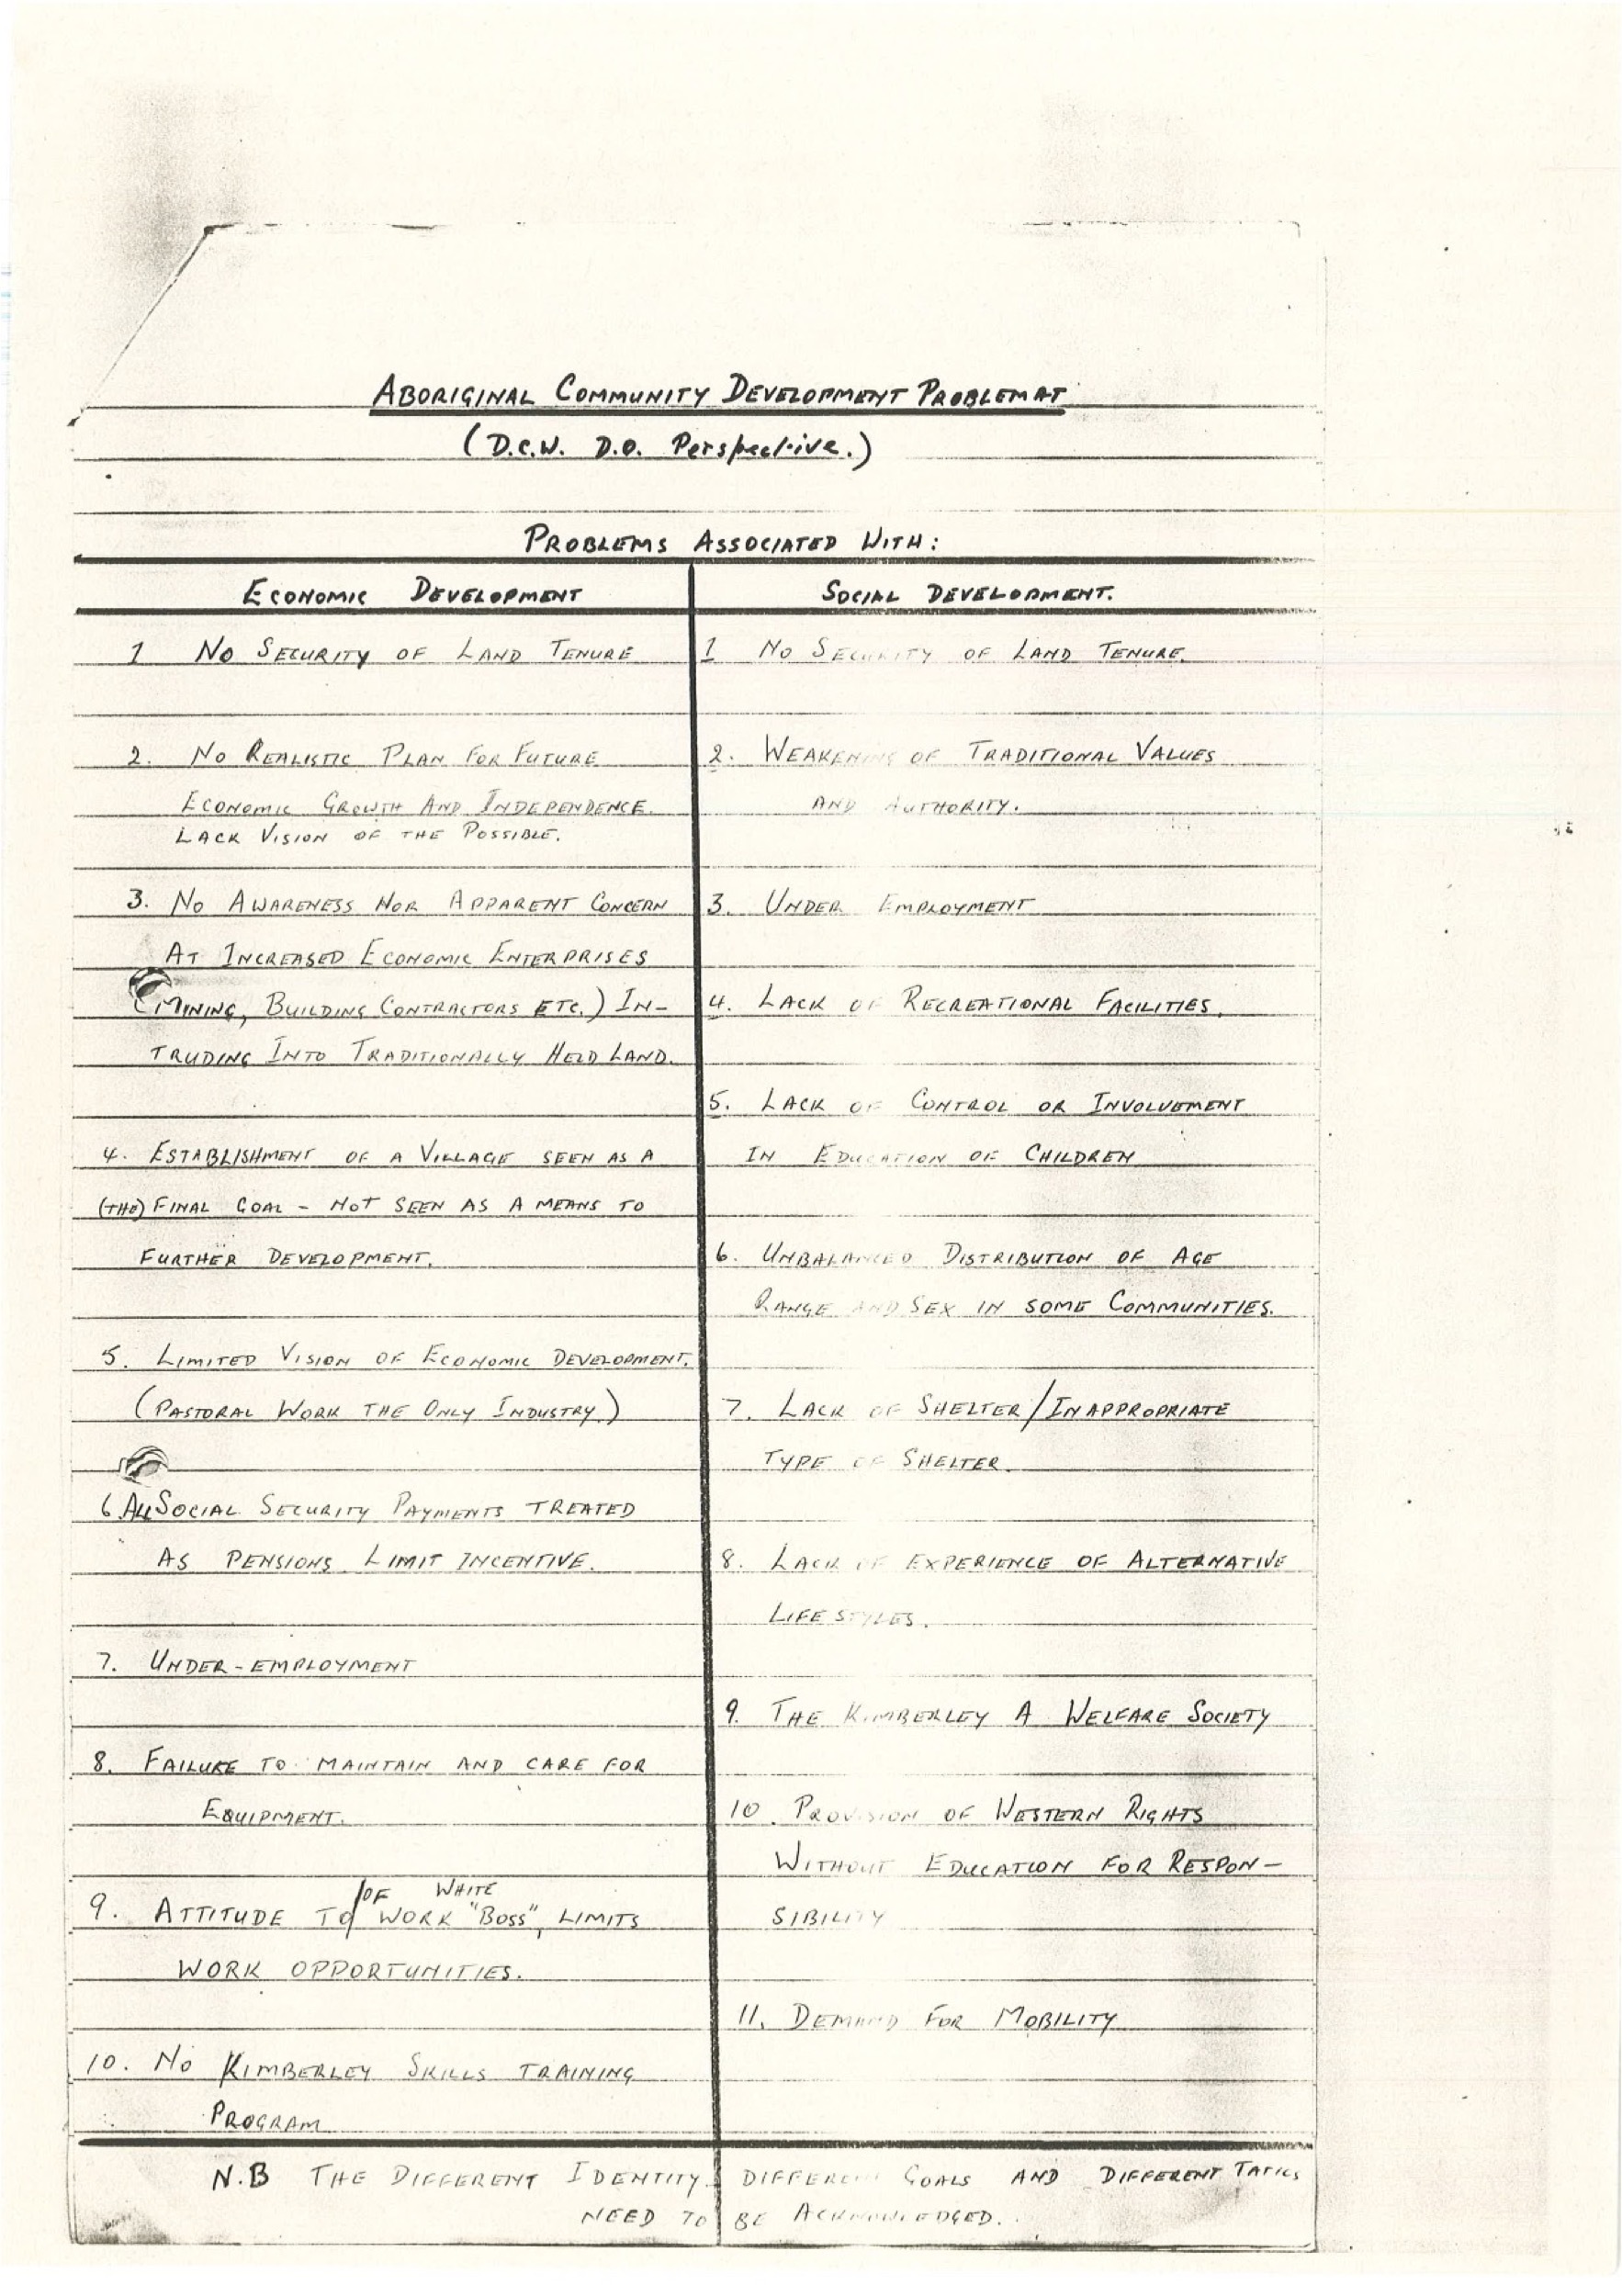 ABORIGINAL COMMUNITY DEVELOPMENT PROBLEMAT
(D.C.W. D.O. Perspective.)
PROBLEMS ASSOCIATED WITH:
ECONOMIC DEVELOPMENT
1 NO SECURITY OF LAND TENURE
2. NO REALISTIC PLAN FOR FUTURE
ECONOMIC GROWTH AND INDEPENDENCE.
LACK VISION OF THE POSSIBLE.
3. NO AWARENESS NOR APPARENT CONCERN
AT INCREASED ECONOMIC ENTERPRISES
(MINING, BUILDING CONTRACTORS ETC.) IN-
TRUDING INTO TRADITIONALLY HELD LAND.
4. ESTABLISHMENT OF A VILLAGE SEEN AS A
(THE) FINAL GOAL - NOT SEEN AS A MEANS TO
FURTHER DEVELOPMENT.
5. LIMITED VISION OF ECONOMIC DEVELOPMENT.
(PASTORAL WORK THE ONLY INDUSTRY.)
6 ALL SOCIAL SECURITY PAYMENTS TREATED
AS PENSIONS LIMIT INCENTIVE.
7. UNDER-EMPLOYMENT
8. FAILURE TO MAINTAIN AND CARE FOR
EQUIPMENT.
OF WHITE
9. ATTITUDE TO/ WORK "BOSS", LIMITS
WORK OPPORTUNITIES.
10. NO KIMBERLEY SKILLS TRAINING
PROGRAM
SOCIAL DEVELOPMENT.
1 NO SECURITY OF LAND TENURE.
2. WEAKENING OF TRADITIONAL VALUES
AND AUTHORITY.
3. UNDER EMPLOYMENT
4. LACK OF RECREATIONAL FACILITIES.
5. LACK OF CONTROL OR INVOLVEMENT
IN EDUCATION OF CHILDREN
6. UNBALANCED DISTRIBUTION OF AGE
RANGE AND SEX IN SOME COMMUNITIES.
7. LACK OF SHELTER/INAPPROPRIATE
TYPE OF SHELTER.
8. LACK OF EXPERIENCE OF ALTERNATIVE
LIFE STYLES.
9. THE KIMBERLEY A WELFARE SOCIETY
10. PROVISION OF WESTERN RIGHTS
WITHOUT EDUCATION FOR RESPON-
SIBILITY
11. DEMAND FOR MOBILITY
N.B THE DIFFERENT IDENTITY, DIFFERENT GOALS AND DIFFERENT TATICS
NEED TO BE ACKNOWLEDGED.